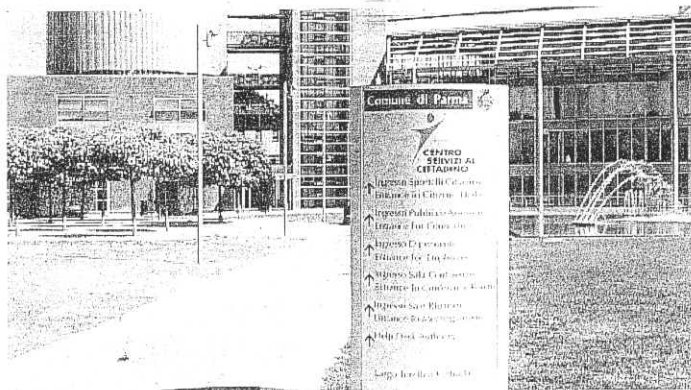 Comune di Parma
CENTRO
SERVIZI AL
CITTADINO
Ingresso Sportelli
Entrance to Citizens
Ingresso Pubblico
Entrance for
Ingresso Dipendenti
Entrance for Employees
Ingresso Sala Conferenze
Entrance to Conference Room
Ingresso Sale Riunioni
Entrance to Meeting
Help Desk
Largo Torello